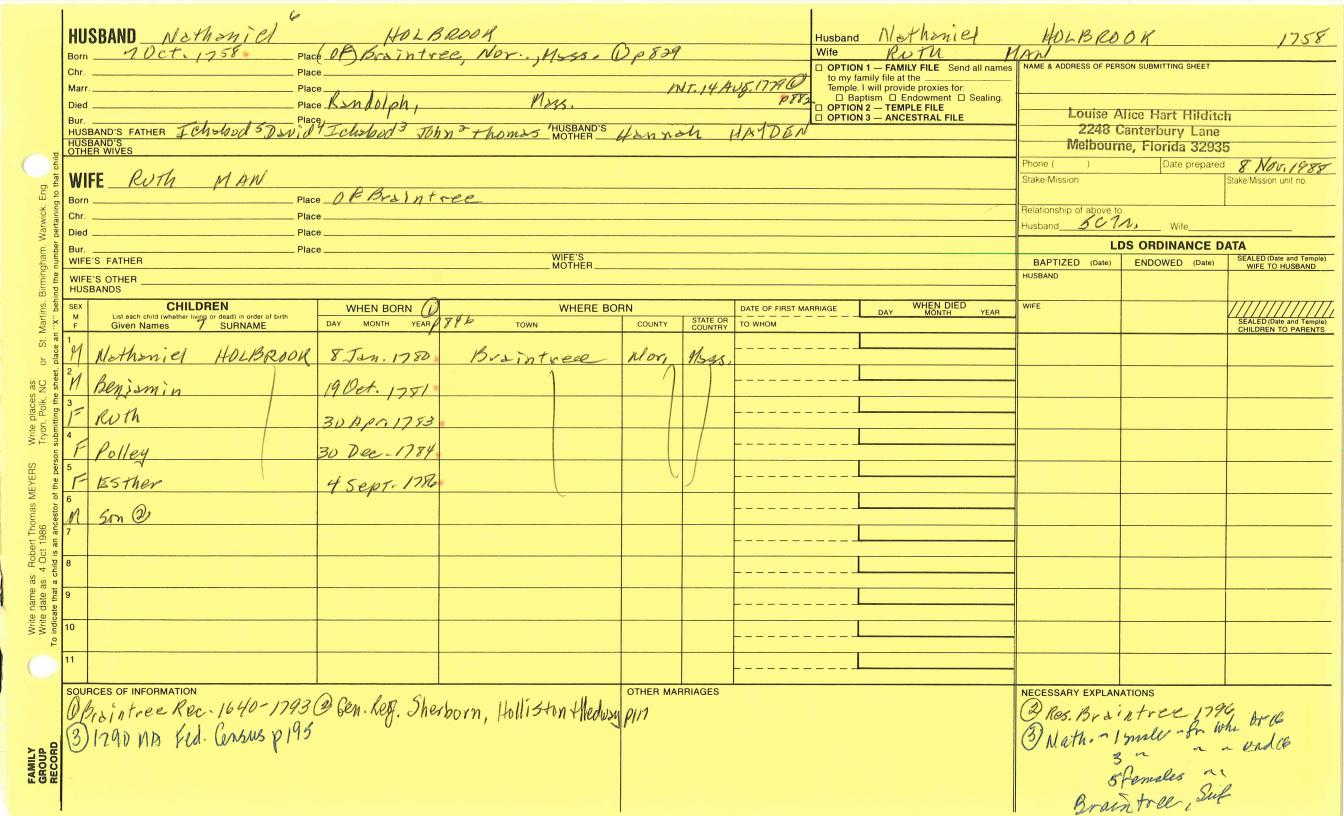 HUSBAND Nathaniel 6 HOLBROOK
Born 7 Oct. 1758 Place (OF) Braintree, Nor., Mass. ① p 829
Chr. Place
Marr. Place INT. 14 Aug. 1779 ① p 882
Died Place Randolph, Mass.
Bur. Place
HUSBAND'S FATHER Ichabod 5 David 4 Ichabod 3 John 2 Thomas 1 HUSBAND'S MOTHER Hannah HAYDEN
HUSBAND'S OTHER WIVES
WIFE Ruth MAN
Born Place OF Braintree
Chr. Place
Died Place
Bur. Place
WIFE'S FATHER WIFE'S MOTHER
WIFE'S OTHER HUSBANDS
Husband Nathaniel HOLBROOK 1758
Wife Ruth MAN
☐ OPTION 1 — FAMILY FILE Send all names
to my family file at the
Temple. I will provide proxies for:
☐ Baptism ☐ Endowment ☐ Sealing.
☐ OPTION 2 — TEMPLE FILE
☐ OPTION 3 — ANCESTRAL FILE
NAME & ADDRESS OF PERSON SUBMITTING SHEET
Louise Alice Hart Hilditch
2248 Canterbury Lane
Melbourne, Florida 32935
Phone ( ) Date prepared 8 Nov. 1988
Stake/Mission Stake/Mission unit no.
Relationship of above to
Husband 5C7r. Wife
LDS ORDINANCE DATA
BAPTIZED (Date) ENDOWED (Date) SEALED (Date and Temple) WIFE TO HUSBAND
HUSBAND
WIFE
SEALED (Date and Temple) CHILDREN TO PARENTS
SEX M F
CHILDREN
List each child (whether living or dead) in order of birth
Given Names 7 SURNAME
WHEN BORN ① p 846
DAY MONTH YEAR
WHERE BORN
TOWN COUNTY STATE OR COUNTRY
DATE OF FIRST MARRIAGE
TO WHOM
WHEN DIED
DAY MONTH YEAR
1 M Nathaniel HOLBROOK 8 Jan. 1780 Braintree Nor. Mass.
2 M Benjamin 19 Oct. 1781
3 F Ruth 30 Apr. 1783
4 F Polley 30 Dec. 1784
5 F Esther 4 Sept. 1786
6 M Son ②
7
8
9
10
11
SOURCES OF INFORMATION
① Braintree Rec. 1640-1793 ② Gen. Reg. Sherborn, Holliston + Medway p 117
③ 1790 MA Fed. Census p 195
OTHER MARRIAGES
NECESSARY EXPLANATIONS
② Res. Braintree 1796
③ Nath. - 1 male - fr Whi ov 16
3 " " " und 16
5 females " "
Braintree, Suf
Write name as: Robert Thomas MEYERS Write places as: Tryon, Polk, NC or St. Martins, Birmingham, Warwick, Eng
Write date as: 4 Oct 1986
To indicate that a child is an ancestor of the person submitting the sheet, place an "X" behind the number pertaining to that child
FAMILY
GROUP
RECORD